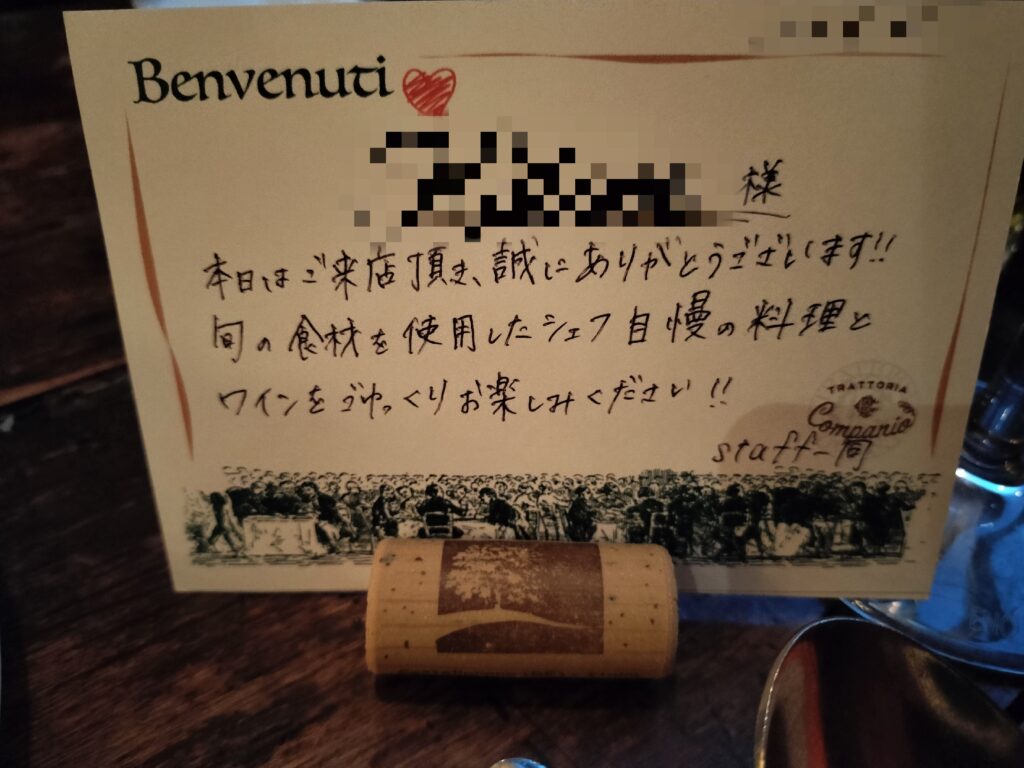 Benvenuti
様
本日はご来店頂き、誠にありがとうございます!!
旬の食材を使用したシェフ自慢の料理と
ワインをごゆっくりお楽しみください!!
TRATTORIA
Companio
staff一同